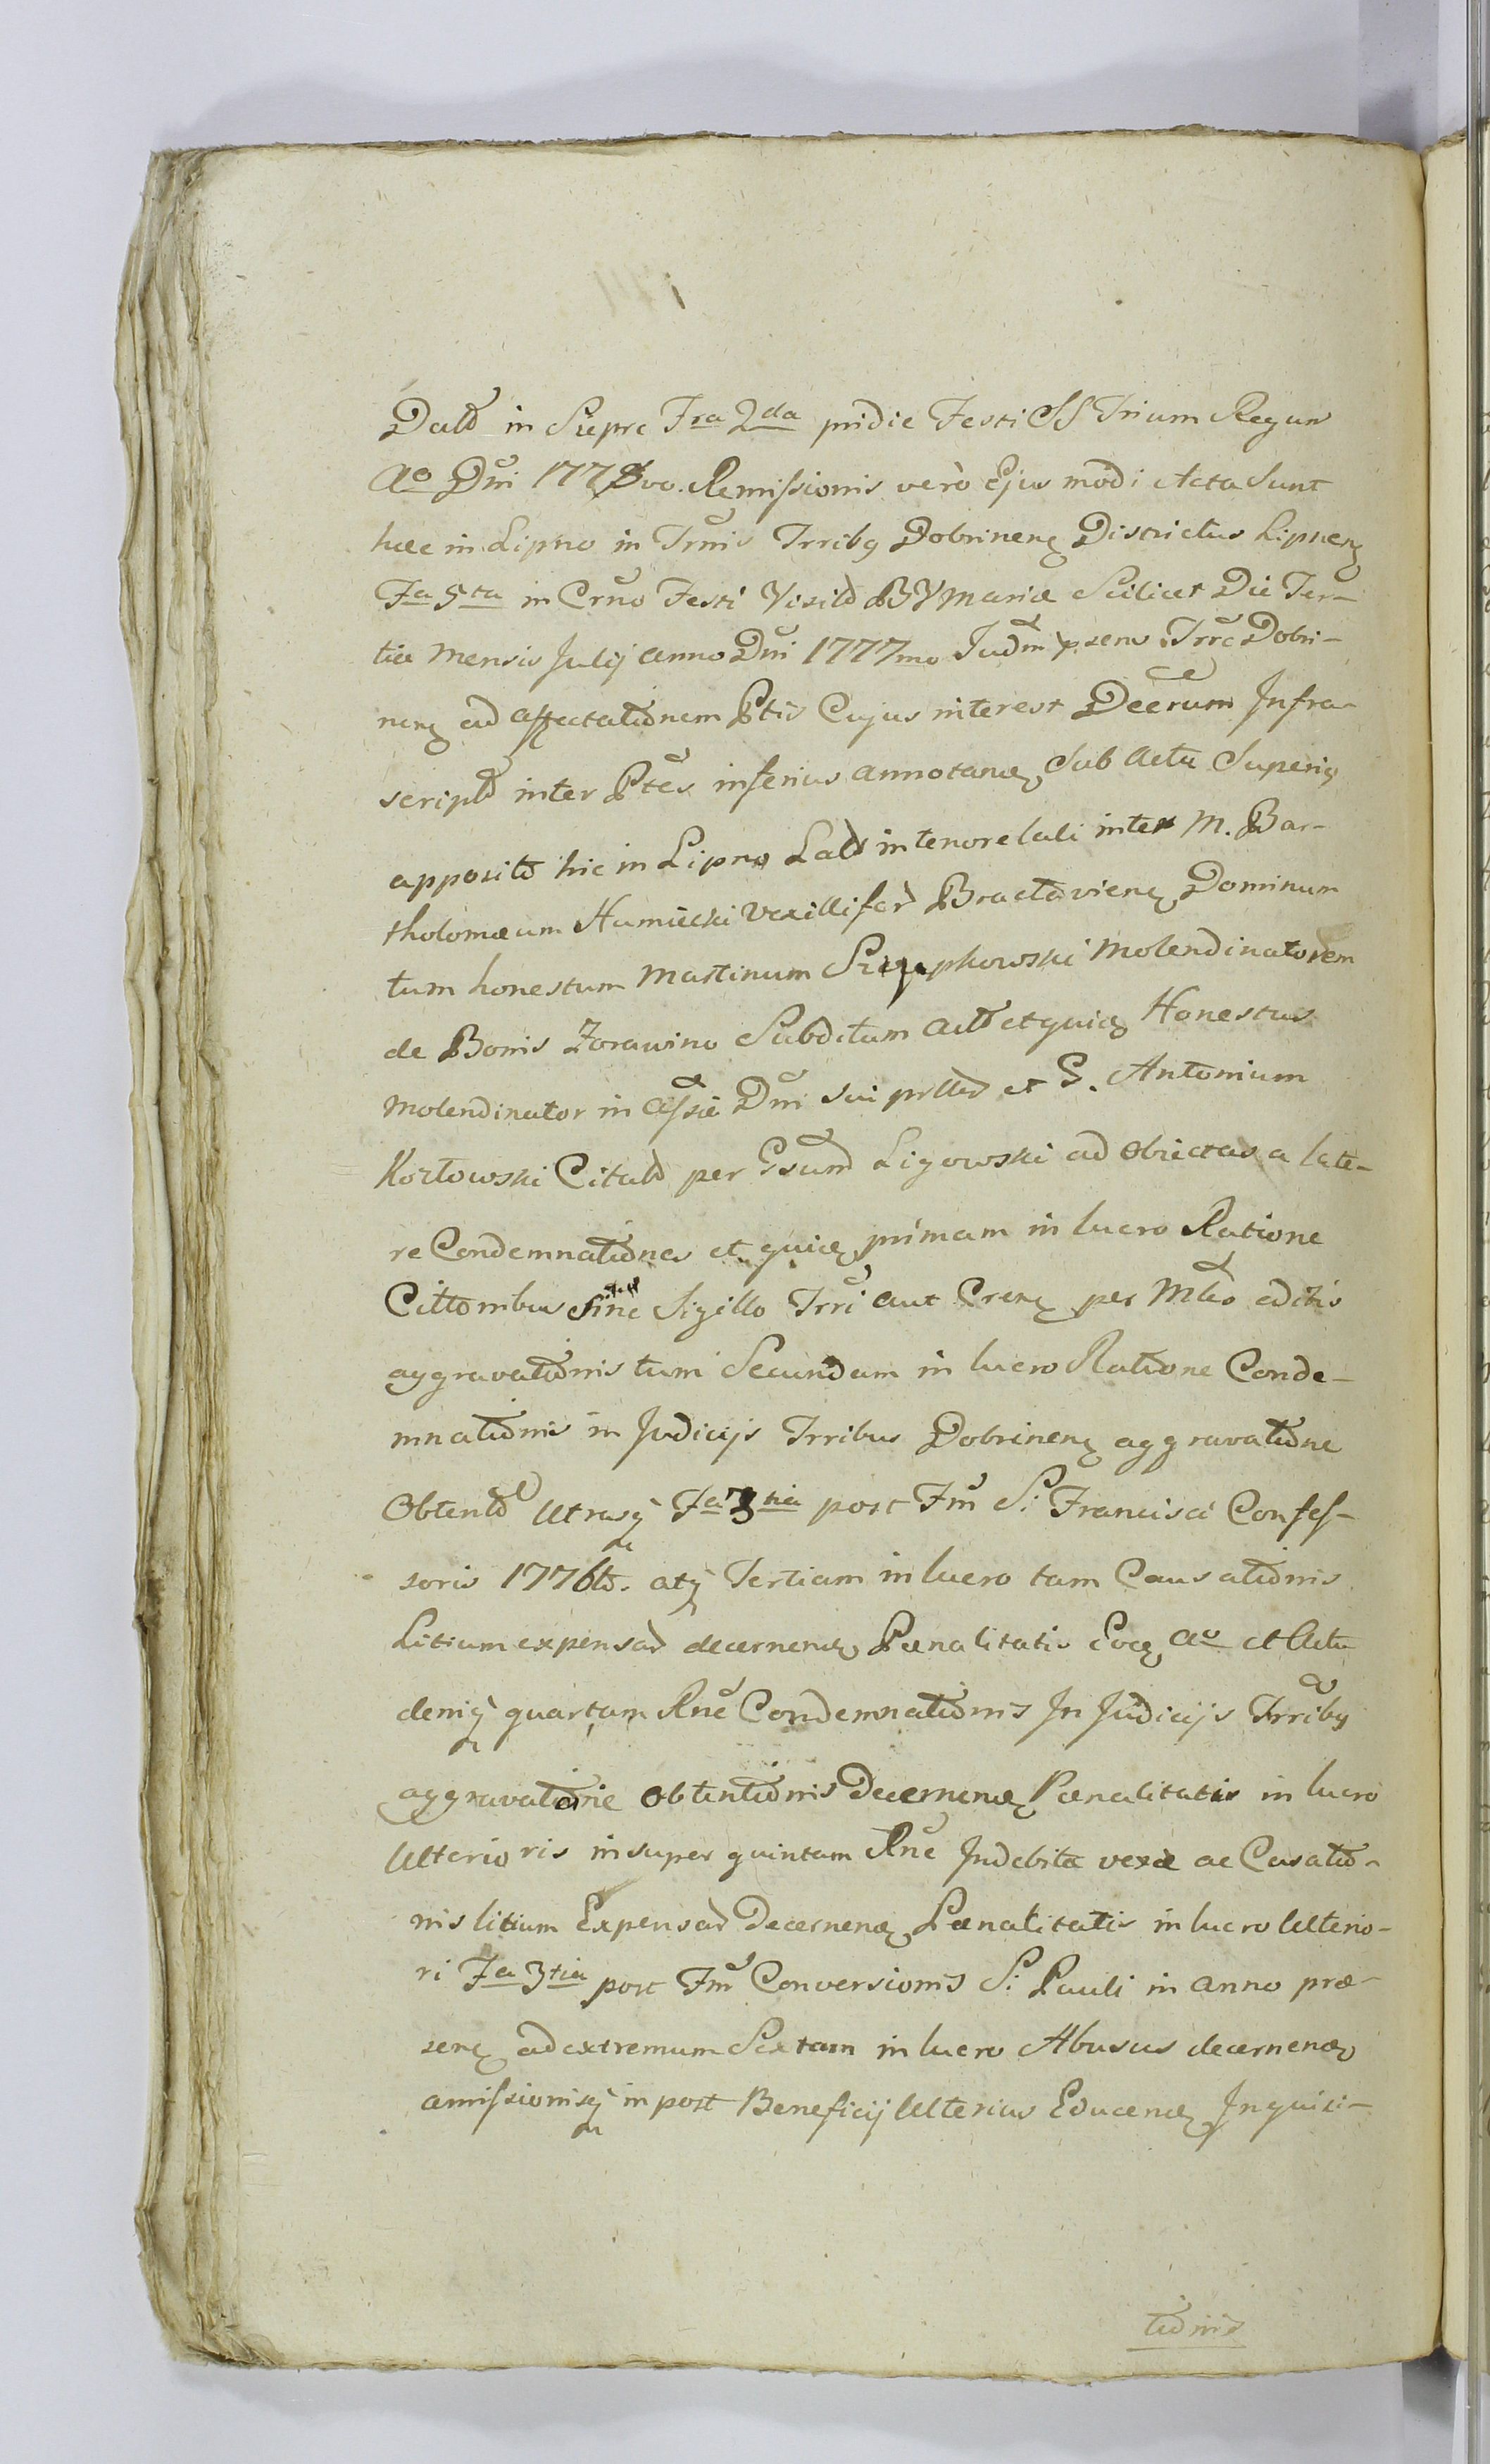 Datt in Sieprc Fra 2da pridie Festi SS Trium Regum
Ao Dni 1778vo. Remissionis verò Ejus modi Acta Sunt
haec in Lipno in Trnis Trribq Dobrinenq Districtus Lipnenq
Fa 5ta in Crno Festi Visitt BVMariæ Scilicet Die Ter-
tia Mensis Julij anno Dni 1777mo Judm psens Trre Dobri-
nenq ad affectationem Ptis Cujus interest Decrum Infra-
scriptt inter Ptes inferius annotanq Sub actu Superiq
appositt hic in Lipno Latt in tenore tali inter M. Bar-
tholomæum Humiecki Vexillifer Braclavienq Dominum
tum honestum Martinum Molendinatorem
de Bonis Zorawino Subditum actt et quiq Honestus
Molendinator in assa Dni Sui prtter et G. Antonium
Kozłowski Citatt per Gsum Ligowski ad Obiectas a late-
re Condemnationes et quiq primam in lucro Ratione
Cittonibus sine Sigillo Trri aut Crenq per Mco editis
aggravationis tum Secundam in lucro Ratione Conde-
mnationis in Judicijs Trribus Dobrinenq aggravatione
Obtentt Utrasq Fa 3tia post Fm S: Francisci Confes-
soris 1776to. atq Tertiam in lucro tam Causationis
Litium expensar decernenq Pœnalitatis Eoq ao et Actu
deniq quartam Rne Condemnationis In Judicijs Trribq
aggravatione obtentionis Decernenq Pœnalitatis in lucro
Ulterioris insuper quintam Rne Indebitæ vexæ ac Casatio-
nis litium Expensar Decernenq Pœnalitatis in lucro Ulterio-
ri Fa 3tia post Fm Conversionis S: Pauli in anno præ-
senq ad extremum Sextam in lucro Abusus decernenq
amissionisq in post Beneficij Ulterius Educenq Inquisi-
tionis